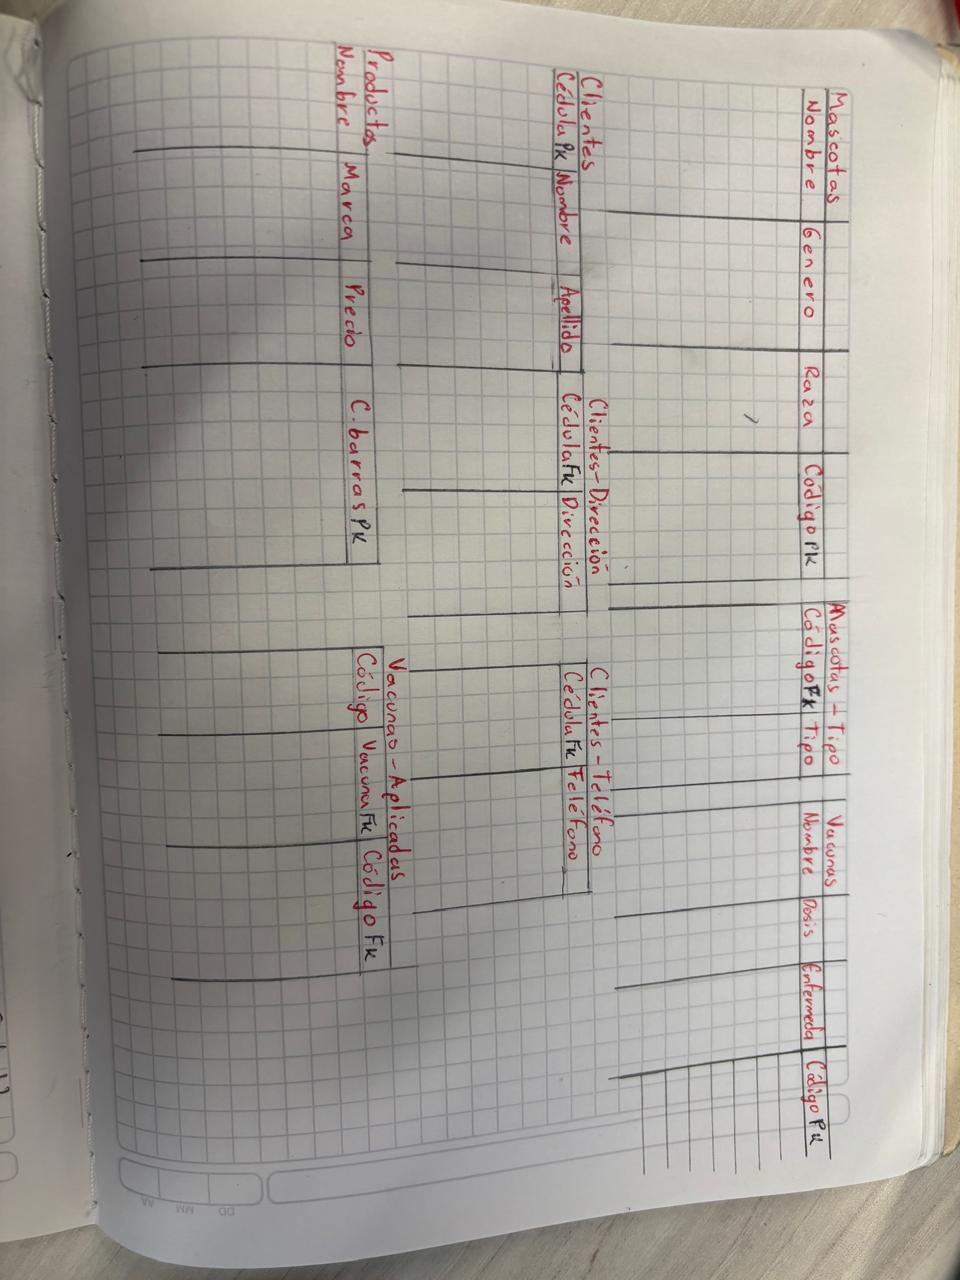 Mascotas
Nombre Genero Raza Código PK
Mascotas-Tipo
Código FK Tipo
Vacunas
Nombre Dosis Enfermeda Código PK
Clientes
Cédula PK Nombre Apellido
Clientes-Dirección
Cédula FK Dirección
Clientes-Teléfono
Cédula FK Teléfono
Productos
Nombre Marca Precio C.barras PK
Vacunas-Aplicadas
Código Vacuna FK Código FK
DD MM AA